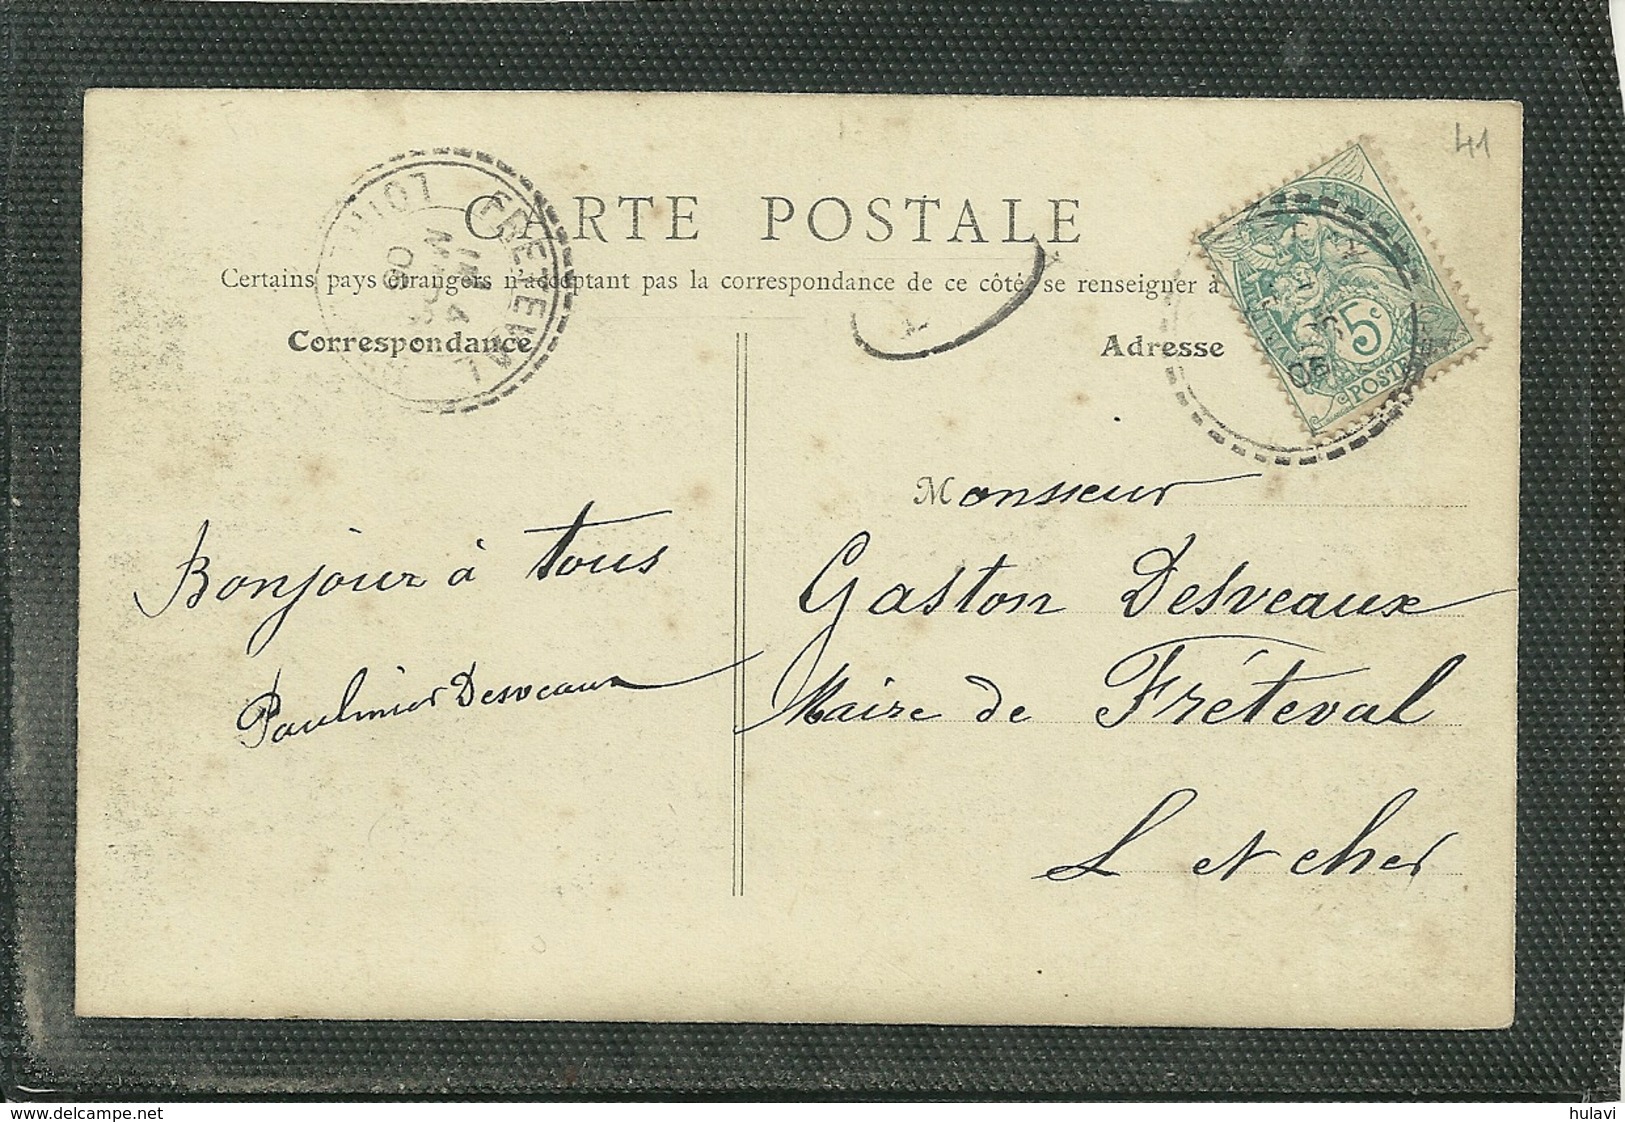 41
CARTE POSTALE
Certains pays étrangers n'acceptant pas la correspondance de ce côté, se renseigner à
Correspondance
Adresse
FRETEVAL
LOIR
5c
POSTE
Monsieur
Gaston Desveaux
Maire de Fréteval
L et cher
Bonjour à tous
Desveaux
www.delcampe.net
hulavi